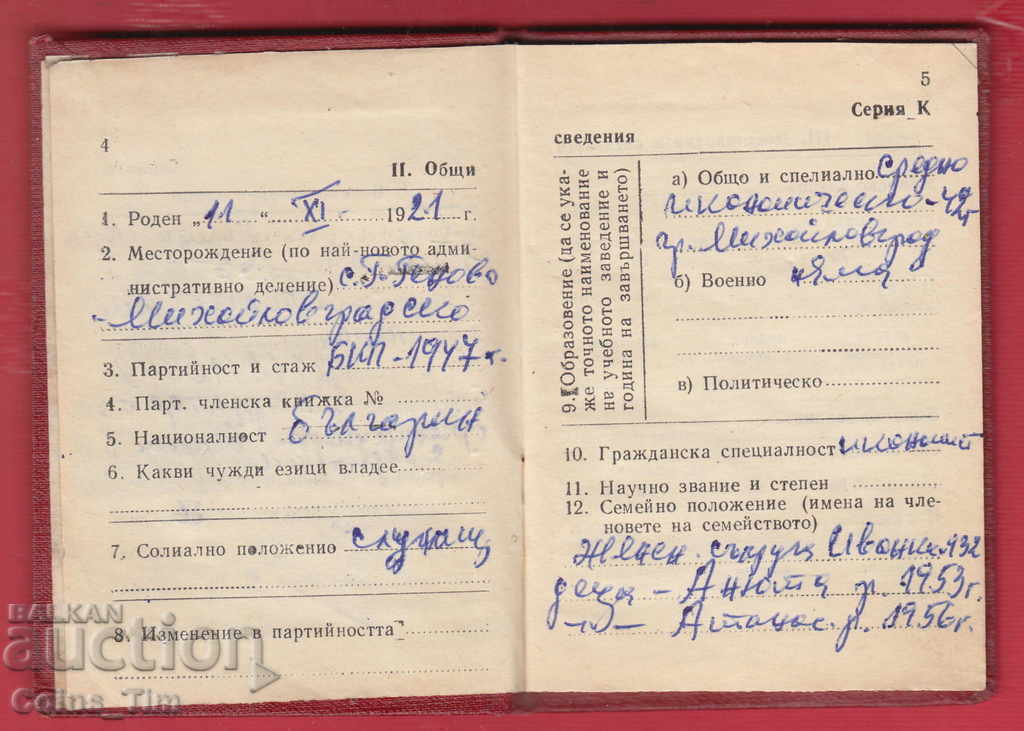 4
II. Общи
1. Роден „11“ XI 1921 г.
2. Месторождение (по най-новото адми-
нистративно деление) с. Г.
Михайловградско
3. Партийност и стаж БКП - 1947 г.
4. Парт. членска книжка №
5. Националност българин
6. Какви чужди езици владее
7. Солиално положенио служащ
8. Изменение в партийността
5
Серия К
сведения
9. Образовение (да се ука-
же точното наименование
на учебното заведение и
година на завършването)
а) Общо и спелиално средно
икономическо - 42 г.
гр. Михайловград
б) Военно няма
в) Политическо
10. Гражданска специалност икономист
11. Научно звание и степен
12. Семейно положение (имена на чле-
новете на семейството)
женен съпруга Иванка 932
деца - Анюта р. 1953 г.
-"- Атанас р. 1956 г.
BALKAN
auction
Coins_Tim